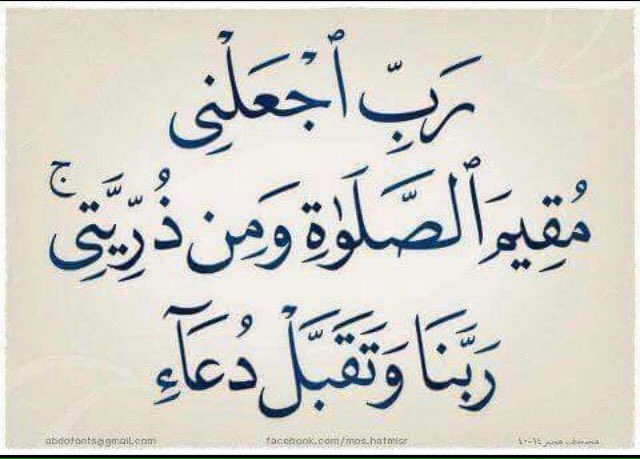 رَبِّ ٱجْعَلْنِى
مُقِيمَ ٱلصَّلَوٰةِ وَمِن ذُرِّيَّتِى ۚ
رَبَّنَا وَتَقَبَّلْ دُعَآءِ
abdofonts@gmail.com facebook.com/mos.hatmisr مصحف مصر ١٤-٤٠